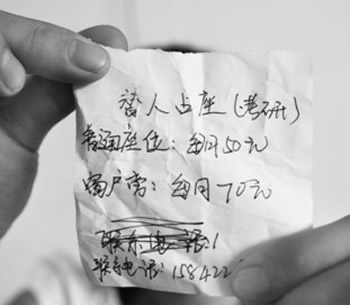 替人占座(考研)
普通座位：每月50元
窗户旁：每月70元
联系电话:1
联系电话：158422